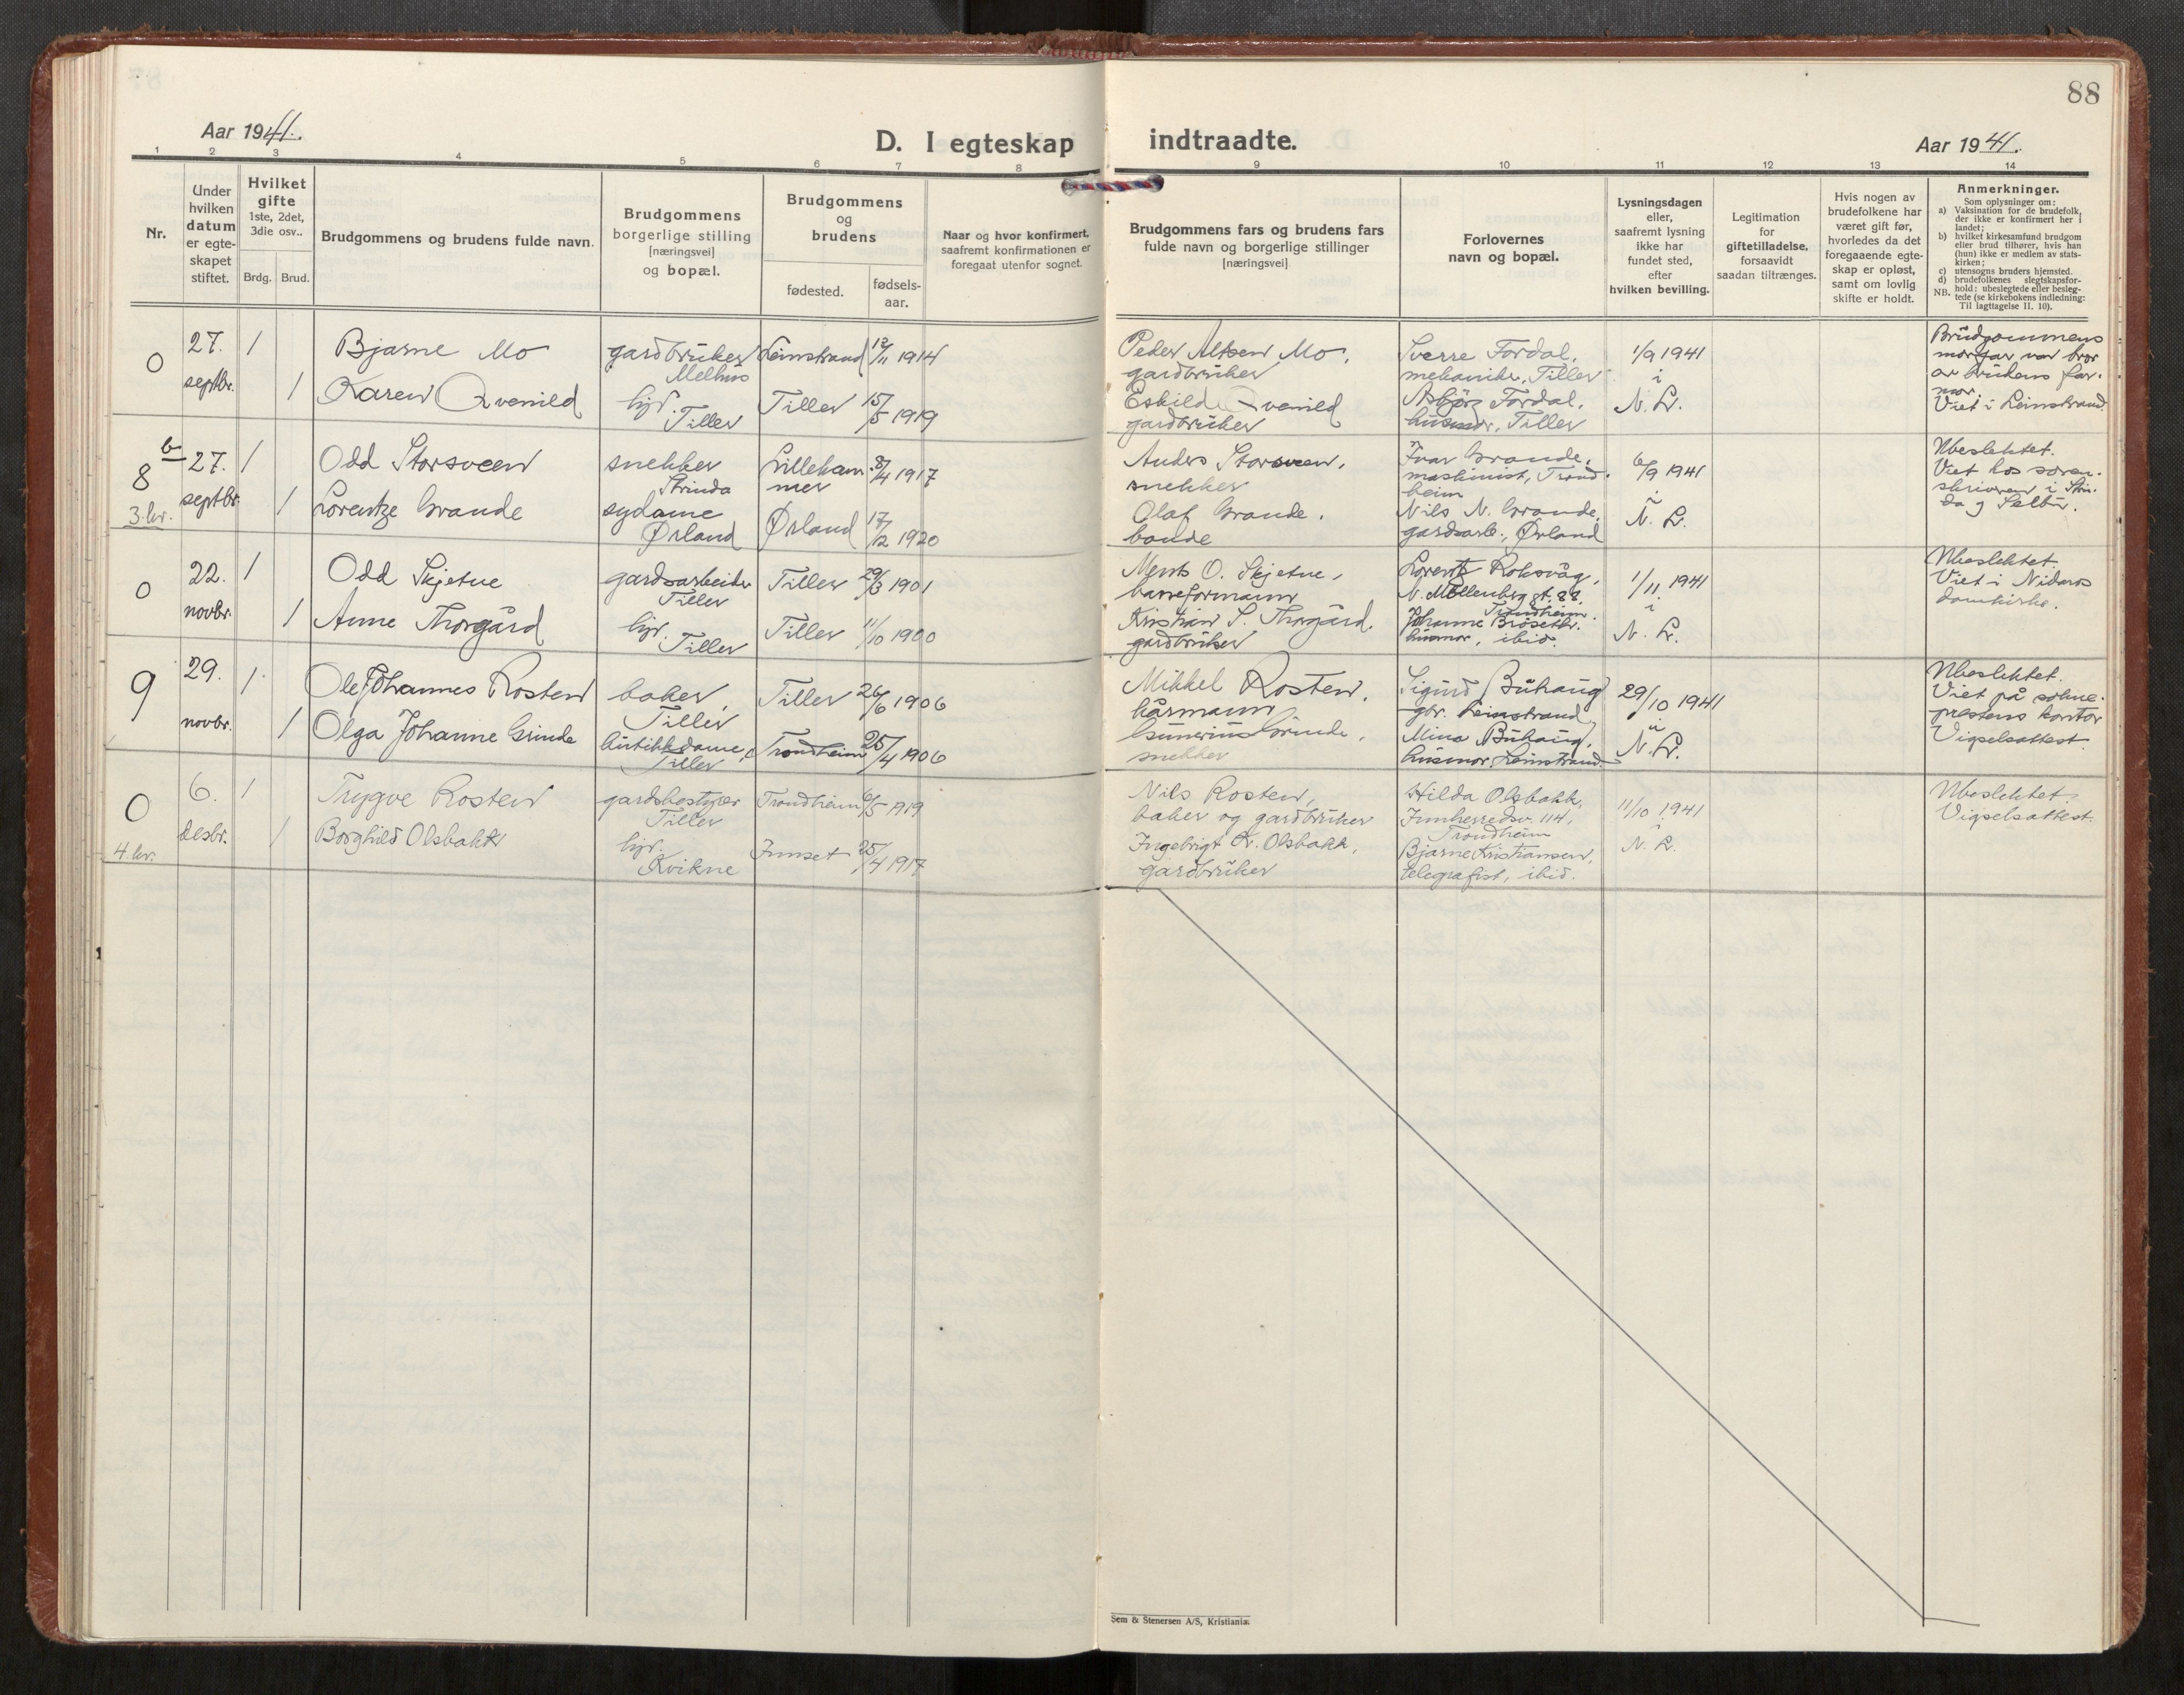 88
Aar 1941.
D. I egteskap indtraadte.
Aar 1941.
1 2 3 4 5 6 7 8 9 10 11 12 13 14
Nr.
Under hvilken datum er egte-skapet stiftet.
Hvilket gifte 1ste, 2det, 3die osv..
Brdg. Brud.
Brudgommens og brudens fulde navn.
Brudgommens borgerlige stilling [næringsvei] og bopæl.
Brudgommens og brudens
fødested.
fødsels-aar.
Naar og hvor konfirmert. saafremt konfirmationen er foregaat utenfor sognet.
Brudgommens fars og brudens fars fulde navn og borgerlige stillinger [næringsvei]
Forlovernes navn og bopæl.
Lysningsdagen eller, saafremt lysning ikke har fundet sted, efter hvilken bevilling.
Legitimation for giftetilladelse, forsaavidt saadan tiltrænges.
Hvis nogen av brudefolkene har været gift før, hvorledes da det foregaaende egte-skap er opløst, samt om lovlig skifte er holdt.
Anmerkninger.
Som oplysninger om:
a) Vaksination for de brudefolk, der ikke er konfirmert her i landet;
b) hvilket kirkesamfund brudgom eller brud tilhører, hvis han (hun) ikke er medlem av stats-kirken;
c) utensogns bruders hjemsted.
d) brudefolkenes slegtskapsfor-hold: ubeslegtede eller besleg-tede (se kirkebokens indledning: Til iagttagelse II. 10).
NB.
0
27. septbr.
1
Bjarne Mo
gardbruker Melhus
Leinstrand
12/11 1914
Peder Altsen Mo, gardbruker
Sverre Fordal, mekaniker, Tiller
1/9 1941 i N. L.
Brudgommens morfar var bror av brudens far-mor.
Viet i Leinstrand.
1
Karen Qvenild
hjv. Tiller
Tiller
15/5 1919
Eskild Qvenild gardbruker
Fordal, husmor, Tiller
8
27. septbr.
1
Odd Storsveen
snekker Strinda
Lilleham-mer
8/4 1917
Anders Storsveen, snekker
Ivar Grande, maskinist, Trond-heim
6/9 1941 i N. L.
Ubeslektet.
Viet hos soren-skriveren i Strin-da og Selbu.
3. kv.
1
Lorentze Grande
sydame Ørland
Ørland
17/12 1920
Olaf Grande, bonde
Nils N. Grande, gardsarb., Ørland
0
22. novbr.
1
Odd Skjetne
gardsarbeider Tiller
Tiller
29/3 1901
Ments O. Skjetne, baneformann
Lorentz Roksvåg, N. Møllenberg gt. 88. Trondheim
1/11 1941 i N. L.
Ubeslektet.
Viet i Nidaros domkirke.
1
Anne Thorgård
hjv. Tiller
Tiller
11/10 1900
Kristian S. Thorgård, gardbruker
Johanne husmor, ibid.
9
29. novbr.
1
Ole Johannes Rosten
baker, Tiller
Tiller
26/6 1906
Mikkel Rosten, kårmann
Sigurd Buhaug gbr. Leinstrand
29/10 1941 i N. L.
Ubeslektet.
Viet på sokne-prestens kontor
Vigselsattest.
1
Olga Johanne Grinde
butikkdame, Tiller
Trondheim
25/4 1906
Gunerius Grinde, snekker
Mina Buhaug, husmor, Leinstrand
0
6. desbr.
1
Trygve Rosten
gardsbestyrer Tiller
Trondheim
6/5 1919
Nils Rosten, baker og gardbruker
Hilda Olsbakk, Innherredsv. 114, Trondheim
11/10 1941 i N. L.
Ubeslektet.
Vigselsattest.
4. kv.
1
Borghild Olsbakk
hjv. Kvikne
Innset
25/4 1917
Ingebrigt K. Olsbakk, gardbruker
Bjarne Kristiansen, telegrafist, ibid.
Sem & Stenersen A/S, Kristiania.